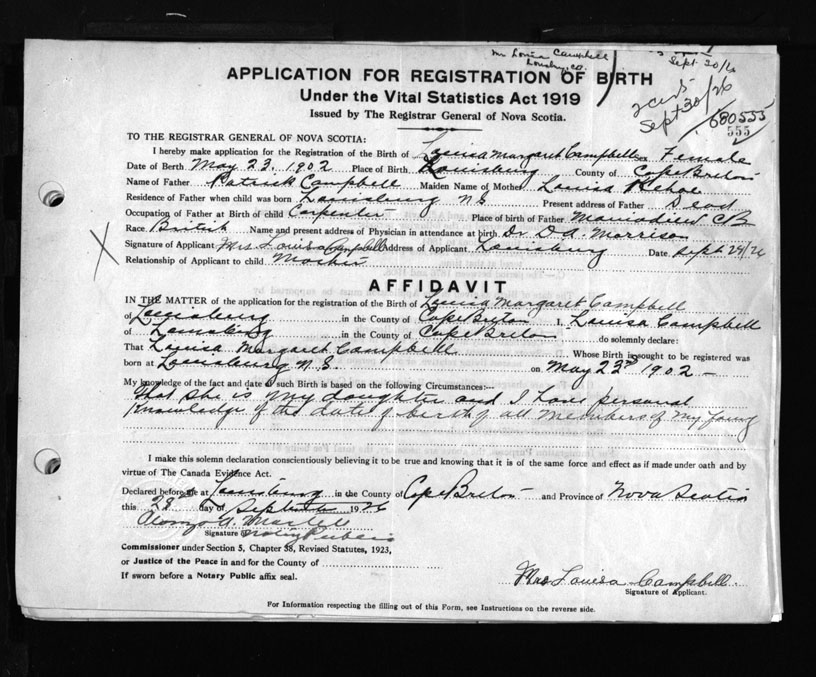 Mrs Louisa Campbell
Louisburg, C.B.
Sept 30/26
2 certs
Sept 30/26
680555
555
APPLICATION FOR REGISTRATION OF BIRTH
Under the Vital Statistics Act 1919
Issued by The Registrar General of Nova Scotia.
TO THE REGISTRAR GENERAL OF NOVA SCOTIA:
I hereby make application for the Registration of the Birth of Louisa Margaret Campbell Sex Female
Date of Birth May 23, 1902 Place of Birth Louisburg County of Cape Breton
Name of Father Patrick Campbell Maiden Name of Mother Louisa Kehoe
Residence of Father when child was born Louisburg N S Present address of Father Dead
Occupation of Father at Birth of child Carpenter Place of birth of Father C B
Race British Name and present address of Physician in attendance at birth Dr D A Morrison
Signature of Applicant Mrs Louisa Campbell Address of Applicant Louisburg Date Sept 28/26
Relationship of Applicant to child Mother
AFFIDAVIT
IN THE MATTER of the application for the registration of the Birth of Louisa Margaret Campbell
of Louisburg in the County of Cape Breton I, Louisa Campbell
of Louisburg in the County of Cape Breton do solemnly declare:
That Louisa Margaret Campbell Whose Birth is sought to be registered was
born at Louisburg N. S. on May 23rd 1902 -
My knowledge of the fact and date of such Birth is based on the following Circumstances:—
That she is my daughter and I have personal
knowledge of the date of birth of all members of my family
I make this solemn declaration conscientiously believing it to be true and knowing that it is of the same force and effect as if made under oath and by
virtue of The Canada Evidence Act.
Declared before me at Louisburg in the County of Cape Breton and Province of Nova Scotia
this 28th day of September 1926
A. Martell
Signature of Notary Public
Commissioner under Section 5, Chapter 38, Revised Statutes, 1923,
or Justice of the Peace in and for the County of
If sworn before a Notary Public affix seal.
Mrs Louisa Campbell
Signature of Applicant.
For Information respecting the filling out of this Form, see Instructions on the reverse side.